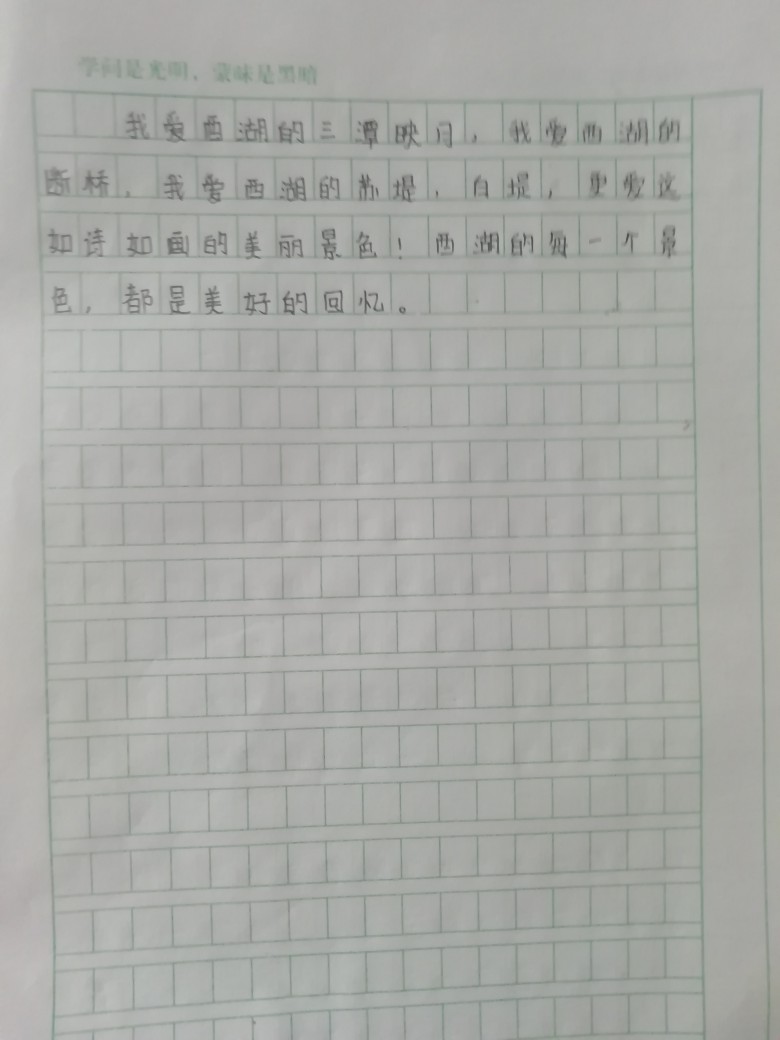 学问是光明，蒙昧是黑暗
我爱西湖的三潭映月，我爱西湖的
断桥，我爱西湖的苏堤，白堤，更爱这
如诗如画的美丽景色！西湖的每一个景
色，都是美好的回忆。